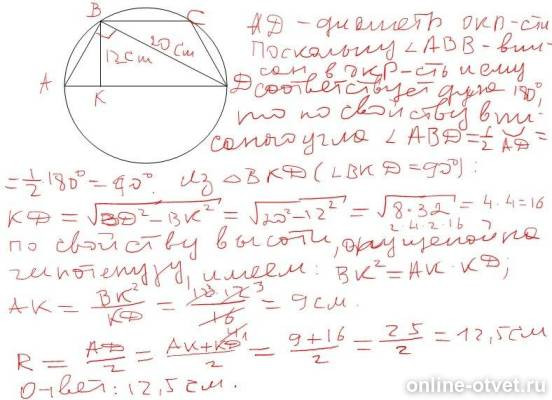 B
C
12cm
20cm
A
K
D
AD - диаметр окр-сти
Поскольку ∠ABB - впи-
сан в окр-сть и ему
соответствует дуга 180°,
то по свойству впи-
саного угла ∠ABD = 1/2 ◡AD =
= 1/2 180° = 90°. Из △BKD (∠BKD = 90°):
KD = √(BD² - BK²) = √(20² - 12²) = √(8·32) = 4·4 = 16
2·4·2·16
по свойству высоты, опущеной на
гипотенузу, имеем: BK² = AK·KD;
AK = BK²/KD = 12·12/16 = 9 см.
R = AD/2 = (AK+KD)/2 = (9+16)/2 = 25/2 = 12,5 см
Ответ: 12,5 см.
online-otvet.ru